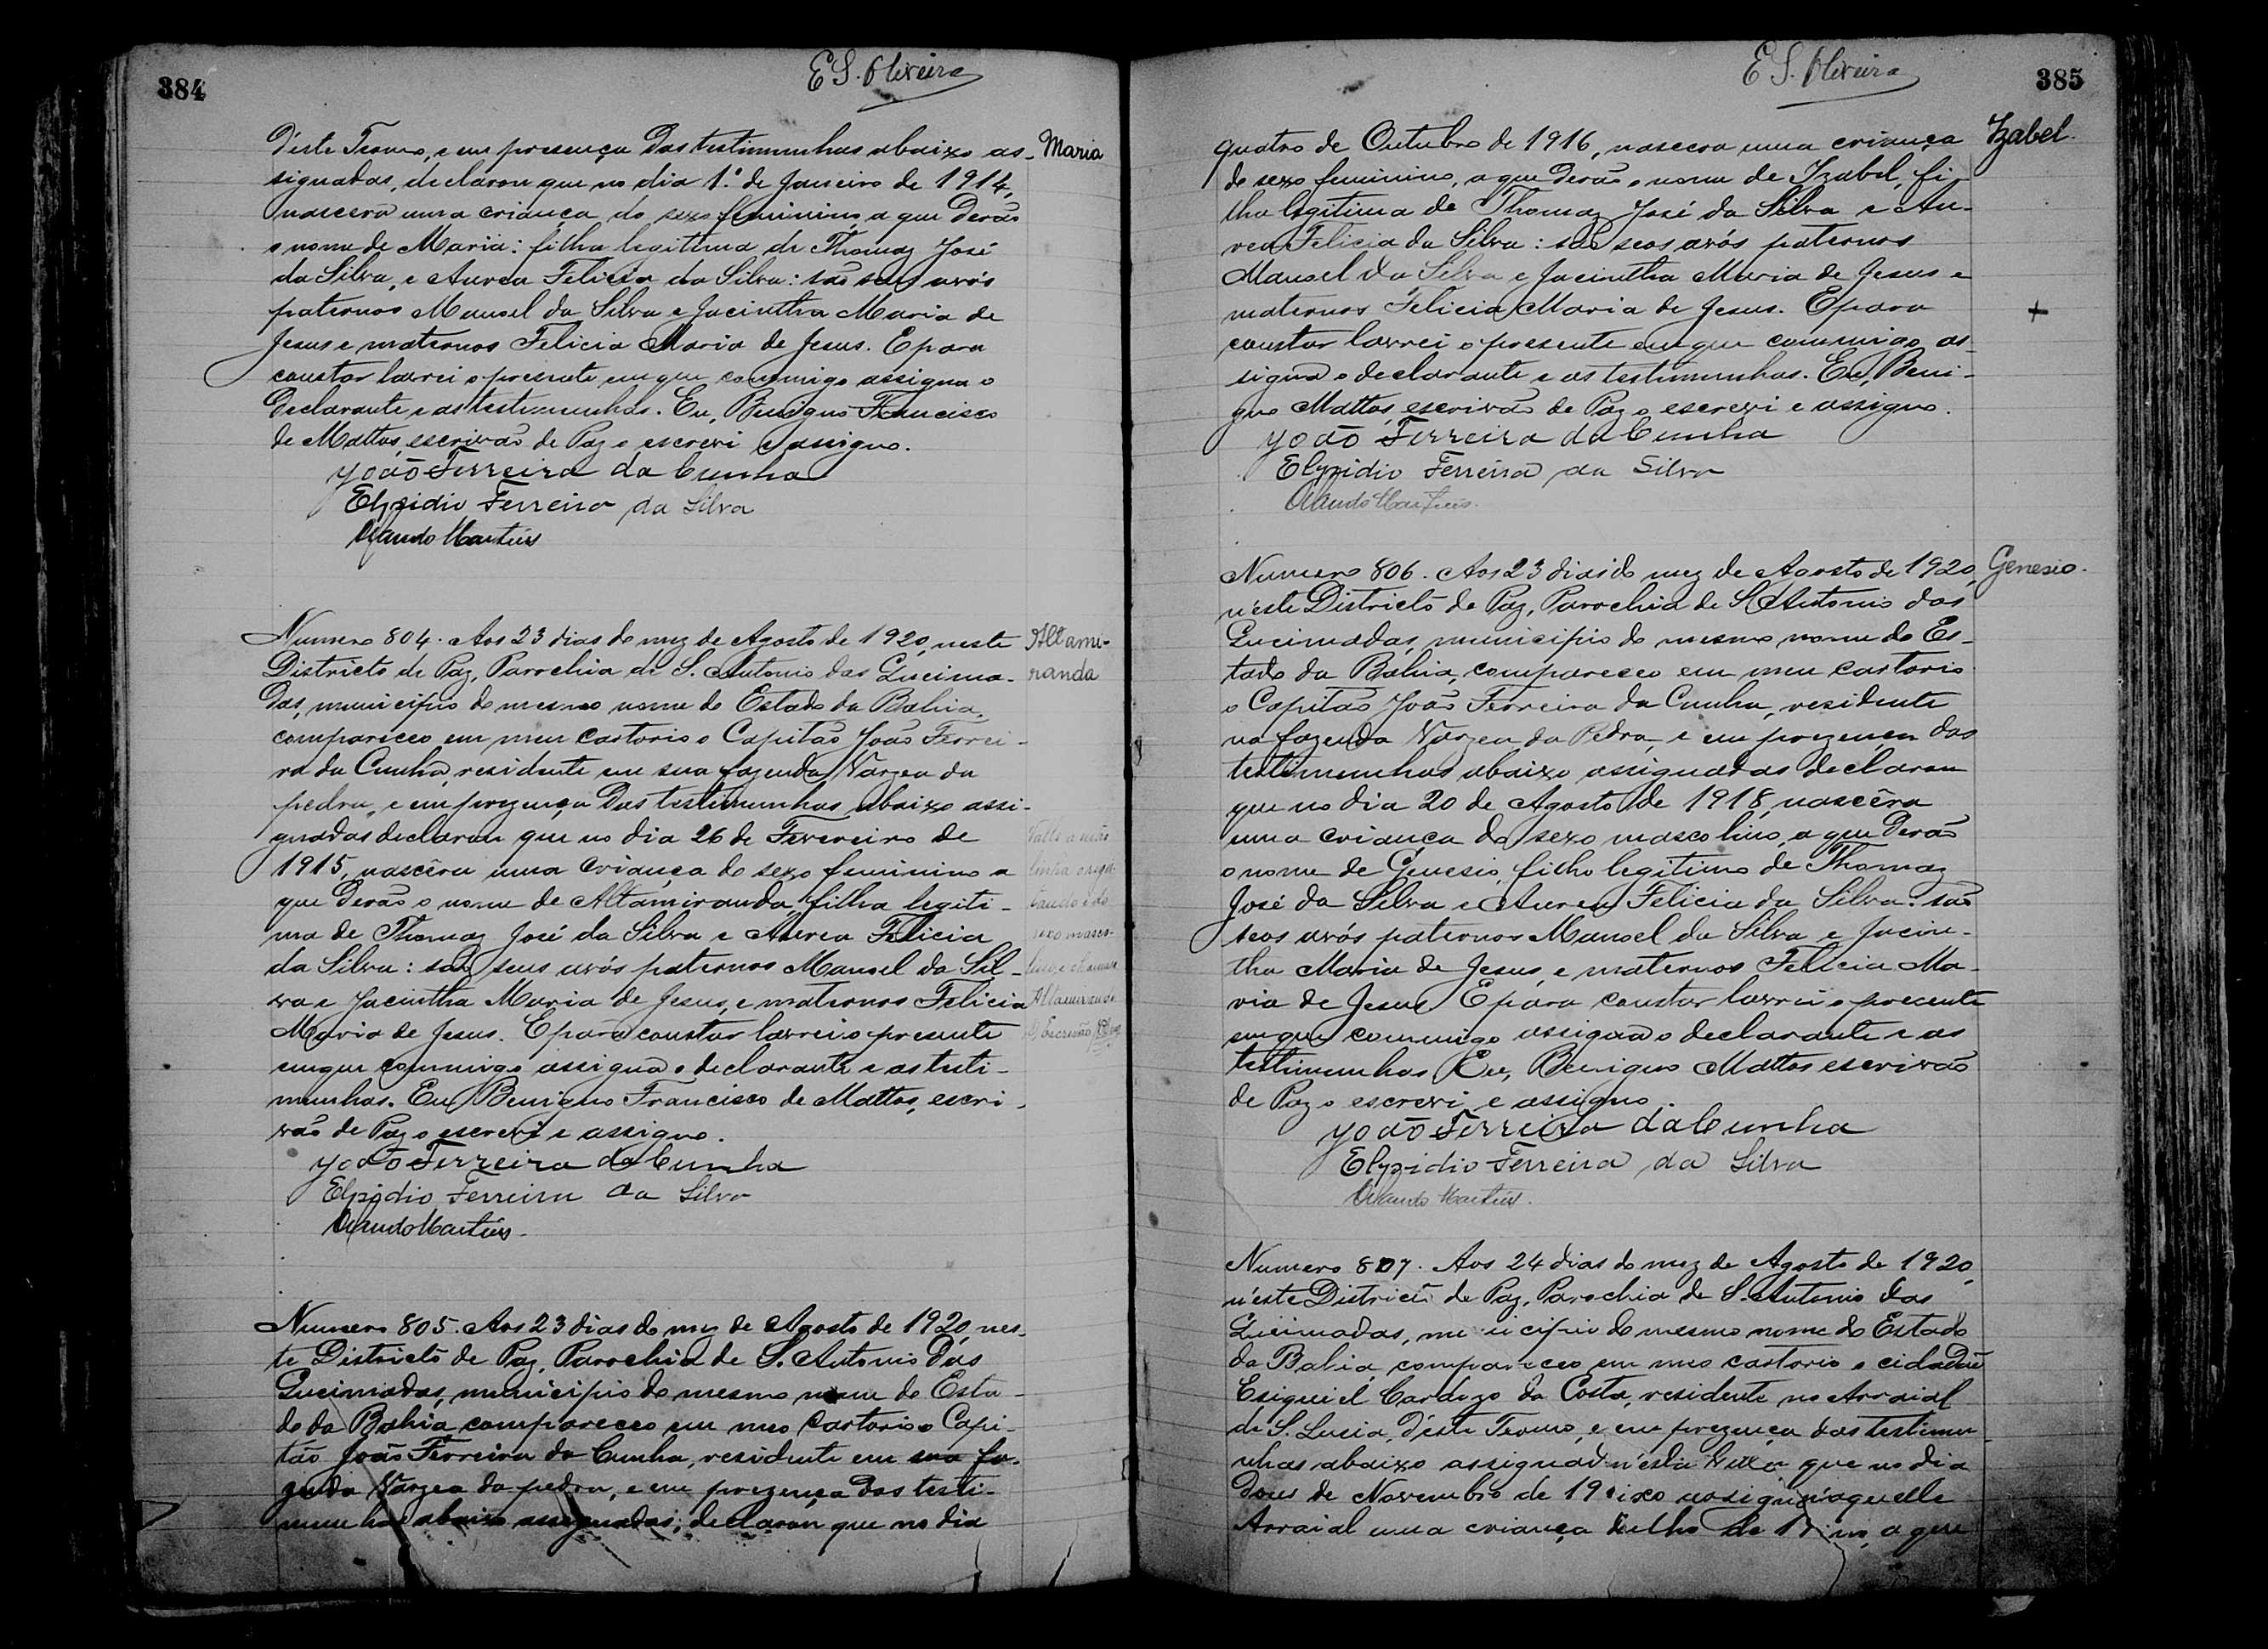 384
E S. Oliveira
d'este Termo, e em presença das testimunhas abaixo as-
Maria
signadas, declarou que no dia 1.º de Janeiro de 1914,
nascera uma criança do sexo feminino, a que derão
o nome de Maria: filha legitima de Thomaz José
da Silva, e Aurea Felicia da Silva: são seus avós
paternos Manoel da Silva e Jacintha Maria de
Jesus e maternos Felicia Maria de Jesus. E para
constar lavrei o presente em que commigo assigna o
declarante e as testimunhas. Eu, Benigno Francisco
de Mattos, escrivão de Paz o escrevi e assigno.
João Ferreira da Cunha
Elpidio Ferreira da Silva
Orlando Martins
Numero 804. Aos 23 dias do mez de Agosto de 1920, neste
Altami-
Districto de Paz, Parochia de S. Antonio das Queima-
randa
das, municipio do mesmo nome do Estado da Bahia,
compareceo em meu Cartorio o Capitão João Ferrei-
ra da Cunha, residente em sua fazenda Varzea da
pedra, e em prezença das testimunhas abaixo assi-
gnadas declarou que no dia 26 de Fevereiro de
1915, nascêra uma criança do sexo feminino a
que derão o nome de Altamiranda, filha legiti-
ma de Thomaz José da Silva e Aurea Felicia
da Silva: são seus avós paternos Manoel da Sil-
va e Jacintha Maria de Jesus, e maternos Felicia
Maria de Jesus. E para constar lavrei o presente
em que commigo assigna o declarante e as testi-
munhas. Eu Benigno Francisco de Mattos, escri-
vão de Paz o escrevi e assigno.
sexo mascu-
Escrivão
João Ferreira da Cunha
Elpidio Ferreira da Silva
Orlando Martins.
Numero 805. Aos 23 dias do mez de Agosto de 1920, nes-
te Districto de Paz, Parochia de S. Antonio das
Queimadas, municipio do mesmo nome do Esta-
do da Bahia, compareceo em meo Cartorio o Capi-
tão João Ferreira da Cunha, residente em sua fa-
zenda Varzea da pedra, e em prezença das testi-
munhas abaixo assignadas, declarou que no dia
E S. Oliveira
385
quatro de Outubro de 1916, nascera uma criança
Izabel.
do sexo feminino, a que derão o nome de Izabel, fi-
lha legitima de Thomaz José da Silva e Au-
rea Felicia da Silva: são seos avós paternos
Manoel da Silva e Jacintha Maria de Jesus e
maternos Felicia Maria de Jesus. E para
+
constar lavrei o presente em que commigo as-
signa o declarante e as testimunhas. Eu, Beni-
gno Mattos, escrivão de Paz o escrevi e assigno.
João Ferreira da Cunha
Elpidio Ferreira da Silva
Orlando Martins.
Numero 806. Aos 23 dias do mez de Agosto de 1920,
Genesio.
n'este Districto de Paz, Parochia de S. Antonio das
Queimadas, municipio do mesmo nome do Es-
tado da Bahia, compareceo em meu cartorio
o Capitão João Ferreira da Cunha, residente
na fazenda Varzea da Pedra, e em prezença das
testimunhas abaixo assignadas declarou
que no dia 20 de Agosto de 1918, nascêra
uma criança do sexo mascolino, a que derão
o nome de Genesio, filho legitimo de Thomaz
José da Silva e Aurea Felicia da Silva: são
seos avós paternos Manoel da Silva e Jacin-
tha Maria de Jesus, e maternos Felicia Ma-
ria de Jesus. E para constar lavrei o prezente
em que commigo assigna o declarante e as
testimunhas. Eu, Benigno Mattos escrivão
de Paz o escrevi e assigno.
João Ferreira da Cunha
Elpidio Ferreira da Silva
Orlando Martins.
Numero 807. Aos 24 dias do mez de Agosto de 1920,
n'este Districto de Paz, Parochia de S. Antonio das
Queimadas, municipio do mesmo nome do Estado
da Bahia, compareceo em meo cartorio o cidadão
Esiquiel Cardozo da Costa, residente no Arraial
de S. Lusia, d'este Termo, e em prezença das testimu-
nhas abaixo que no dia
dous de Novembro de
Arraial uma criança a que